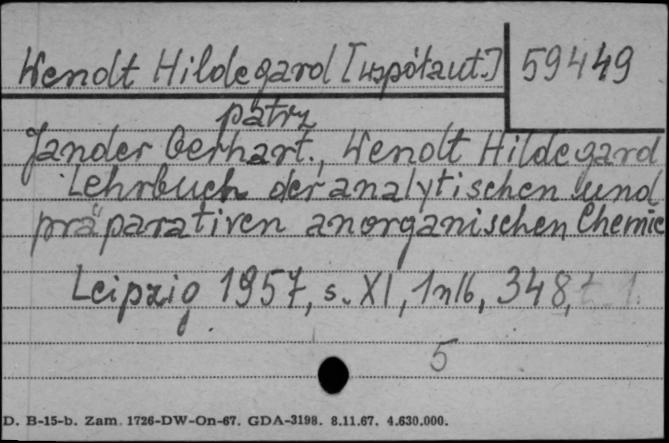 Wendt Hildegard [współaut.] 59449
patrz
Jander Gerhart., Wendt Hildegard
Lehrbuch der analytischen und
präparativen anorganischen Chemie
Leipzig 1957, s. XI, 1 nlb, 348, t. 1.
5
D. B-15-b. Zam. 1726-DW-On-67. GDA-3198. 8.11.67. 4.630.000.